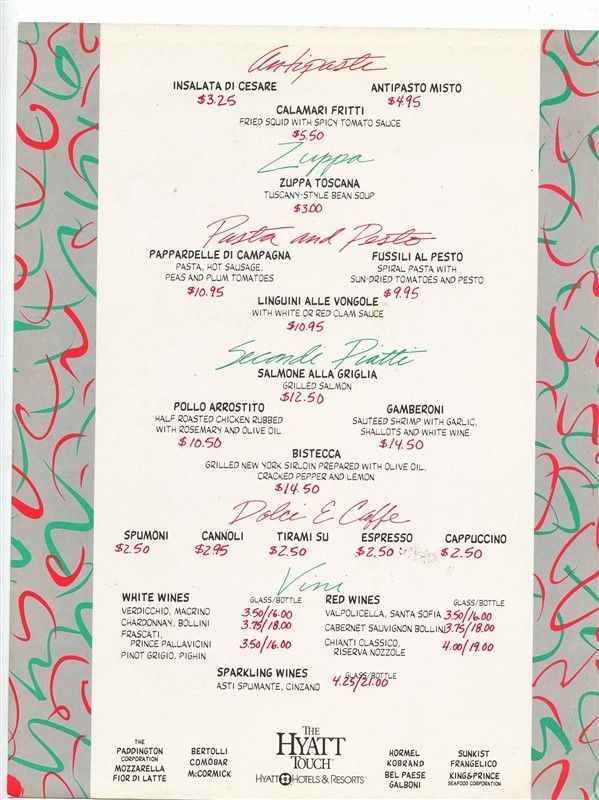 Antipasti
INSALATA DI CESARE ANTIPASTO MISTO
$3.25 $4.95
CALAMARI FRITTI
FRIED SQUID WITH SPICY TOMATO SAUCE
$5.50
Zuppa
ZUPPA TOSCANA
TUSCANY-STYLE BEAN SOUP
$3.00
Pasta and Pesto
PAPPARDELLE DI CAMPAGNA
PASTA, HOT SAUSAGE,
PEAS AND PLUM TOMATOES
$10.95
FUSSILI AL PESTO
SPIRAL PASTA WITH
SUN-DRIED TOMATOES AND PESTO
$9.95
LINGUINI ALLE VONGOLE
WITH WHITE OR RED CLAM SAUCE
$10.95
Secondi Piatti
SALMONE ALLA GRIGLIA
GRILLED SALMON
$12.50
POLLO ARROSTITO
HALF ROASTED CHICKEN RUBBED
WITH ROSEMARY AND OLIVE OIL
$10.50
GAMBERONI
SAUTEED SHRIMP WITH GARLIC,
SHALLOTS AND WHITE WINE
$14.50
BISTECCA
GRILLED NEW YORK SIRLOIN PREPARED WITH OLIVE OIL,
CRACKED PEPPER AND LEMON
$14.50
Dolci E Caffe
SPUMONI CANNOLI TIRAMI SU ESPRESSO CAPPUCCINO
$2.50 $2.95 $2.50 $2.50 $2.50
Vini
WHITE WINES GLASS/BOTTLE
VERDICCHIO, MACRINO 3.50/16.00
CHARDONNAY, BOLLINI 3.75/18.00
FRASCATI,
PRINCE PALLAVICINI 3.50/16.00
PINOT GRIGIO, PIGHIN
RED WINES GLASS/BOTTLE
VALPOLICELLA, SANTA SOFIA 3.50/16.00
CABERNET SAUVIGNON BOLLINI 3.75/18.00
CHIANTI CLASSICO,
RISERVA NOZZOLE 4.00/19.00
SPARKLING WINES GLASS/BOTTLE
ASTI SPUMANTE, CINZANO 4.25/21.00
THE
PADDINGTON
CORPORATION
MOZZARELLA
FIOR DI LATTE
BERTOLLI
COMOBAR
McCORMICK
THE
HYATT
TOUCH
HYATT HOTELS & RESORTS
HORMEL
KOBRAND
BEL PAESE
GALBONI
SUNKIST
FRANGELICO
KING&PRINCE
SEAFOOD CORPORATION